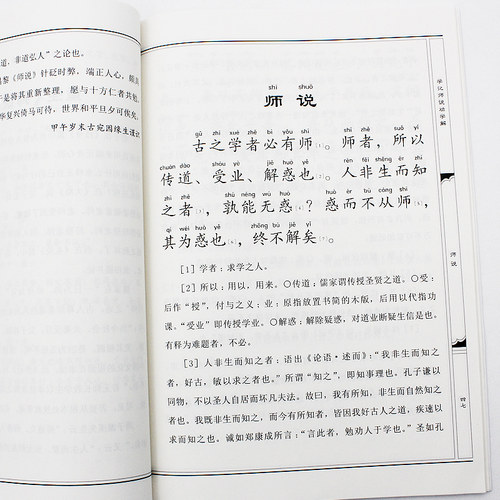 道，非道弘人”之论也。
黎《师说》针砭时弊，端正人心，颇
是将其重新整理，愿与十方仁者共勉，
华复兴倚马可待，世界和平旦夕可俟矣
甲午岁末古宛因缘生谨识
shī shuō
师 说
gǔ zhī xué zhě bì yǒu shī shī zhě suǒ yǐ
古之学者必有师[1]。师者，所以
chuán dào shòu yè jiě huò yě rén fēi shēng ér zhī
传道、受业、解惑也[2]。人非生而知
zhī zhě shú néng wú huò huò ér bù cóng shī
之者[3]，孰能无惑[4]？惑而不从师[5]，
qí wéi huò yě zhōng bù jiě yǐ
其为惑也[6]，终不解矣[7]。
[1] 学者：求学之人。
[2] 所以：用以，用来。〇传道：儒家谓传授圣贤之道。〇受：
后作“授”，付与之义；业：原指放置书简的木版，后用以代指功
课。“受业”即传授学业。〇解惑：解除疑惑，对道业断疑生信是也。
有释为难题者，不必。
[3] 人非生而知之者：语出《论语·述而》：“我非生而知之
者，好古，敏以求之者也。”所谓“知之”，即知事理也。孔子谦以
同物，不以圣人自居而坏凡夫法。故曰，我有所知，非生而自然知之
者也。我既非生而知之，而今有所知者，皆因我好古人之道，疾速以
求而知之也。诚如郑康成所言：“言此者，勉劝人于学也。”圣如孔
学记师说幼学解
师说
四七